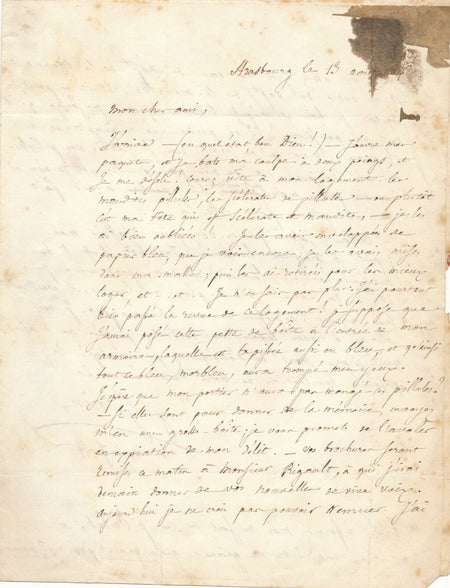 Strasbourg le 13 aou
mon cher ami,
J'arrive — (en quel état, bon Dieu!) — J'ouvre mes
paquets, et je bats ma coulpe à deux poings, et
je me désole! Courez vite à mon logement les
maudites pilules! les scélérates de pillules — ou plutôt
c'est ma tête qui est scélérate et maudite, — je les
ai bien oubliées! Je les avais enveloppées de
papier bleu, que je vois encore; je les avais mises
dans ma malle; puis les ai retirées pour les mieux
loger, et .. et .. Je n'en sais pas plus. J'ai pourtant
bien passé la revue de ce logement! Je suppose que
j'aurai posé cette peste de boîte à l'entrée de mon
armoire, laquelle est tapissée aussi en bleu, et qu'ainsi
tout ce bleu, morbleu, aura trompé mes yeux.
J'espère que mon portier n'aura pas mangé les pillules?
— Si elles sont pour donner de la mémoire, envoyez
m'en une grosse boîte. je vous promets de l'avaler
en expiation de mon délit. — Vos brochures seront
remises ce matin à Monsieur Rigault, à qui j'irai
demain donner de vos nouvelles de vive voix.
Aujourd'hui je ne crois pas pouvoir remuer. J'ai